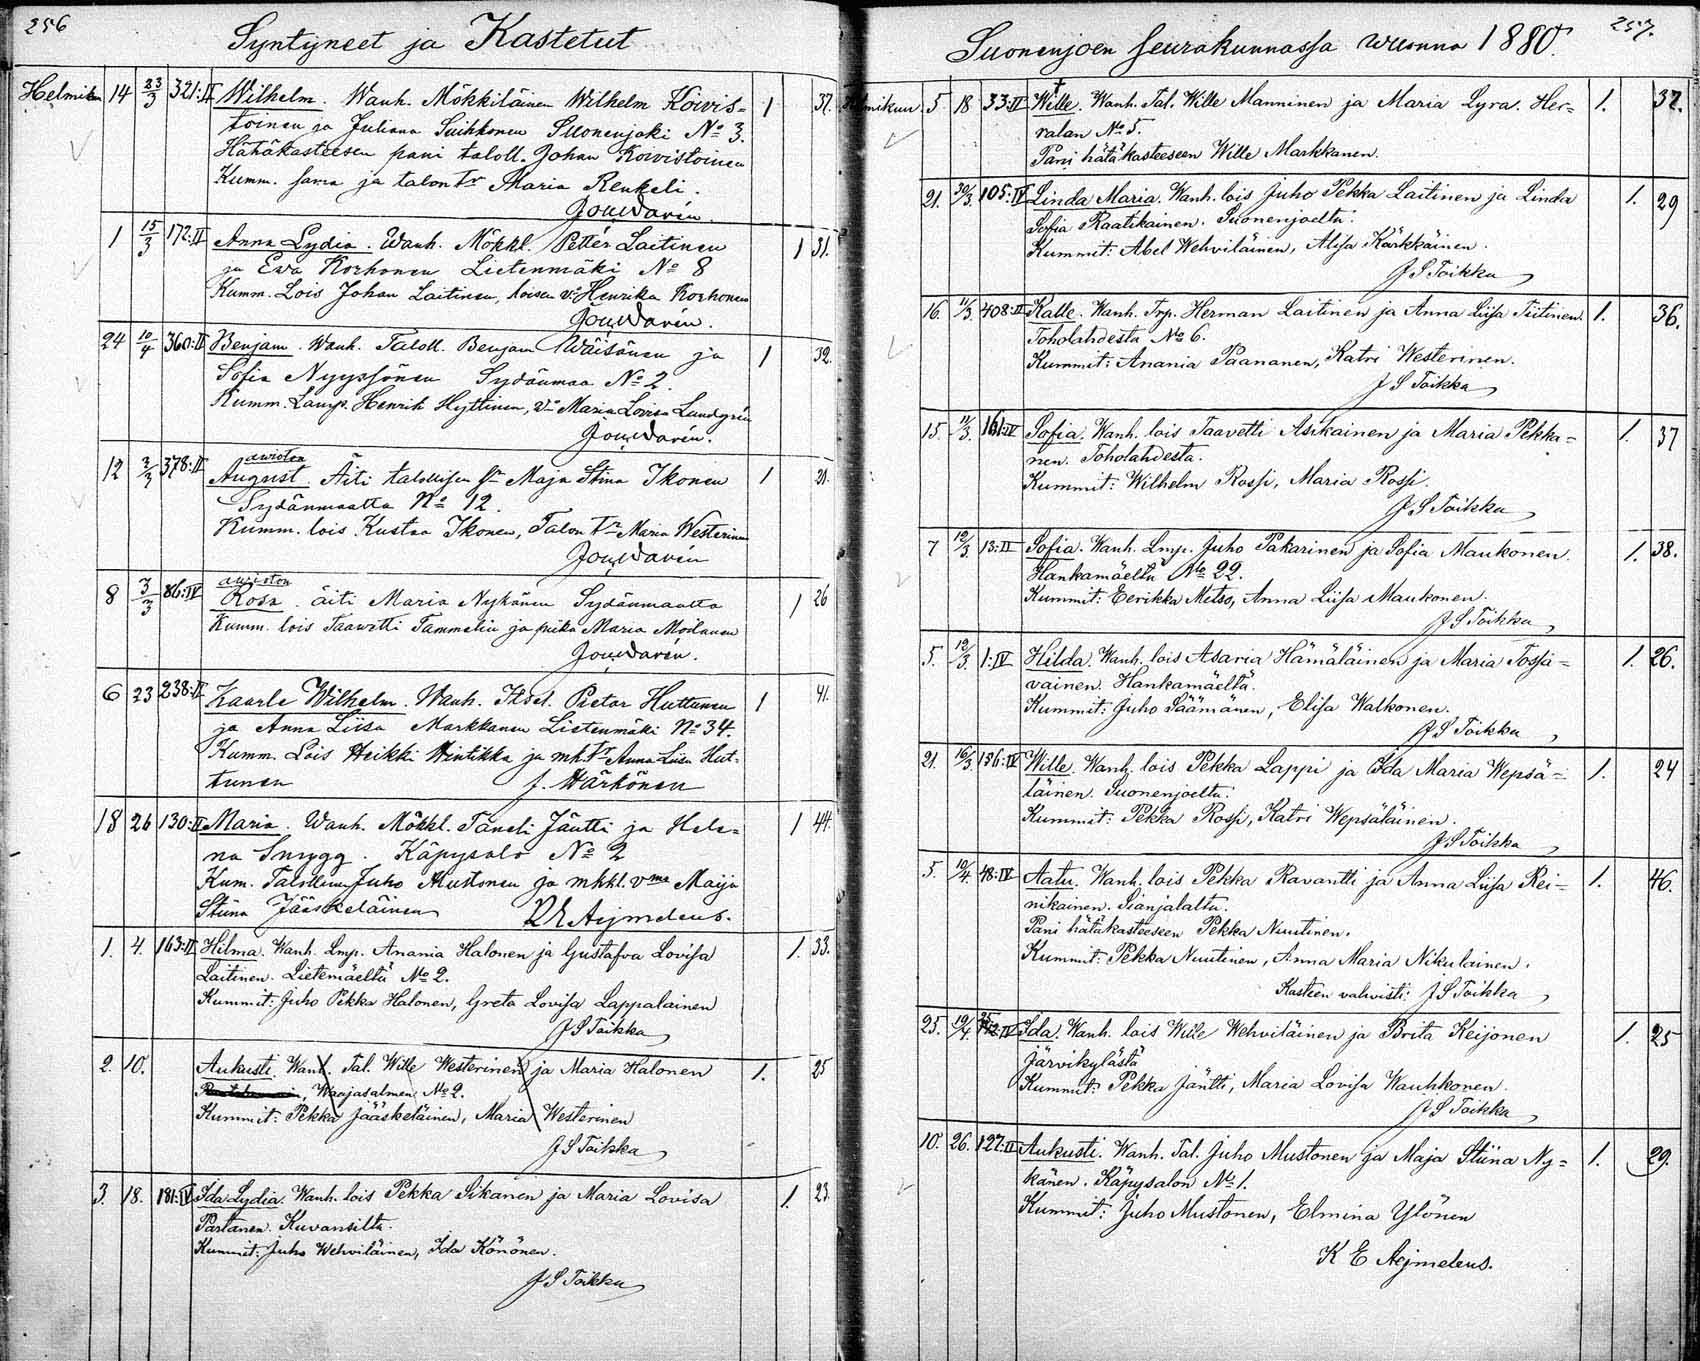 256
Syntyneet ja Kastetut
Helmik. 14 23/3 321:II Wilhelm. Wanh. Mökkiläinen Wilhelm Koivis= 1 37.
toinen ja Juliana Suihkonen Suonenjoki No 3.
Hätäkasteesen pani taloll. Johan Koivistoinen
Kumm. sama ja talon tr Maria Renkeli.
1 15/3 172:II Anna Lydia. Wanh. Mökkl. Petter Laitinen 1 31.
ja Ewa Korhonen Lietenmäki No 8
Kumm. Lois Johan Laitinen, loisen vo Henrika Korhonen
24 10/4 360:II Benjam. Wanh. Taloll. Benjam Wäisänen ja 1 32.
Sofia Nyyssönen Sydänmaa No 2.
Kumm. Lamp. Henrik Hyttinen, vo Maria Lovisa Lundgrén
awioton
12 378:II August. Äiti talollisen tr Maja Stina Ikonen 1 21.
Sydänmaalta No 12.
Kumm. lois Kustaa Ikonen, Talon tr Maria Westerinen
awioton
8 7/3 86:IV Rosa. äiti Maria Nykänen Sydänmaalta 1 26
Kumm. lois Taawetti Tammelin ja piika Maria Moilanen
6 23 238:II Kaarle Wilhelm. Wanh. Itsel. Pietar Huttunen 1 41.
ja Anna Liisa Markkanen Lietenmäki No 34.
Kumm. Lois Heikki Hintikka ja mk. tr Anna Liisa Hut=
tunen J. Härkönen
18 26 130:II Maria. Wanh. Mökkl. Taneli Jäntti ja Hele= 1 44.
na Snygg. Käpysalo No 2
Kum. Talollinen Juho Mustonen ja mkkl. vmo Maija
Stiina Jääskeläinen K E Aejmeleus.
1. 4. 163:II Hilma. Wanh. Lmp. Anania Halonen ja Gustafva Lovisa 1. 33.
Laitinen. Lietemäeltä No 2.
Kummit: Juho Pekka Halonen, Greta Lovisa Lappalainen
J S Toikka
2. 10. Aukusti. Wanh. Tal. Wille Westerinen ja Maria Halonen 1. 25
, Waajasalmen No 2.
Kummit: Pekka Jääskeläinen, Maria Westerinen
J S Toikka
3. 18. 181:IV Ida Lydia. Wanh. lois Pekka Sikanen ja Maria Lovisa 1. 23.
Partanen. Kuvansilta.
Kummit: Juho Wehviläinen, Ida Könönen.
J S Toikka
257.
Suonenjoen seurakunnassa wuonna 1880.
Helmikuu. 5 18 33:II Wille. Wanh. Tal. Wille Manninen ja Maria Lyra. Her= 1. 32.
ralan No 5.
Pani hätäkasteeseen Wille Markkanen.
21. 30/3. 105:IV Linda Maria. Wanh. lois Juho Pekka Laitinen ja Linda 1. 29
Sofia Raatikainen. Suonenjoelta.
Kummit: Abel Wehviläinen, Alisa Kärkkäinen.
J S Toikka
16. 11/3. 408:II Kalle. Wanh. Trp. Herman Laitinen ja Anna Liisa Tiitinen. 1. 36.
Toholahdesta No 6.
Kummit: Anania Paananen, Katri Westerinen.
J S Toikka
15. 11/3. 161:IV Sofia. Wanh. lois Taavetti Asikainen ja Maria Pekka= 1. 37
nen. Toholahdesta.
Kummit: Wilhelm Rossi, Maria Rossi.
J S Toikka
7 12/3 13:II Sofia. Wanh. Lmp. Juho Pakarinen ja Sofia Maukonen. 1. 38.
Hankamäeltä No 22.
Kummit: Eerikka Metso, Anna Liisa Maukonen.
J S Toikka
5. 12/3. 1:IV Hilda. Wanh. lois Asaria Hämäläinen ja Maria Tossa= 1. 26.
vainen. Hankamäeltä.
Kummit: Juho Säämänen, Elisa Walkonen.
J S Toikka
21. 16/3. 156:IV Wille. Wanh. lois Pekka Lappi ja Ida Maria Wepsä= 1. 24
läinen. Suonenjoelta.
Kummit: Pekka Rossi, Katri Wepsäläinen.
J S Toikka
5. 10/4. 48:IV Aatu. Wanh. lois Pekka Ravantti ja Anna Liisa Rei= 1. 46.
nikainen. Sianjalalta.
Pani hätäkasteeseen Pekka Nuutinen.
Kummit: Pekka Nuutinen, Anna Maria Nikulainen.
Kasteen vahvisti: J S Toikka
25. 12/4. Ida. Wanh. lois Wille Wehviläinen ja Brita Keijonen 1. 25
Järvikylästä
Kummit: Pekka Jäntti, Maria Lovisa Wauhkonen.
J S Toikka
10. 26. 127:II Aukusti. Wanh. Tal. Juho Mustonen ja Maja Stiina Ny= 1. 29.
känen. Käpysalon No 1.
Kummit: Juho Mustonen, Elmina Ylönen
K E Aejmeleus.